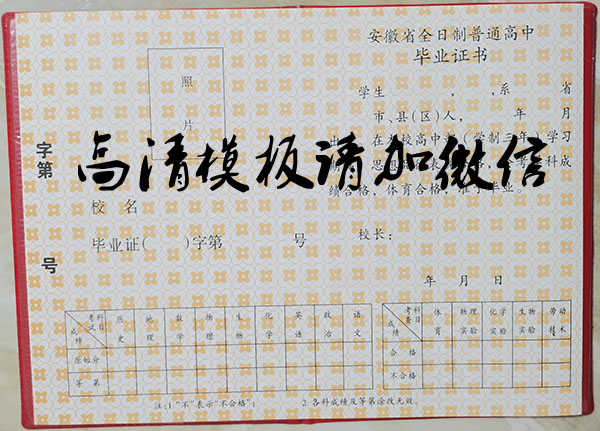 安徽省全日制普通高中
毕业证书
照
片
学生　，　，系　省
市、县(区)人，　年　月
在　校高中　(学制三年)学习
思　科成
绩合格，体育合格，准予毕业。
高清模板请加微信
字第
号
校 名
毕业证(　)字第　号
校长：
年 月 日
科目 考试 成绩 历史 地理 数学 物理 生物 化学 英语 政治 语文
原始分
等 第
科目 考查 成绩 体育 物理实验 化学实验 生物实验 劳动技术
合 格
不合格
注:1 "不"表示"不合格"；　2. 各科成绩及等第涂改无效。